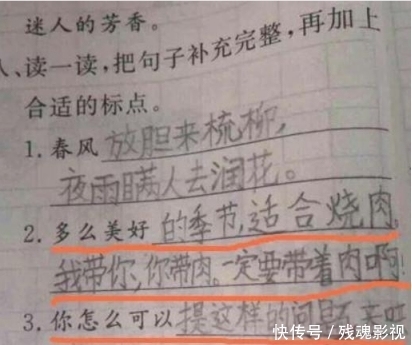 迷人的芳香。
、读一读，把句子补充完整，再加上
合适的标点。
1. 春风 放胆来梳柳，
夜雨瞒人去润花。
2. 多么美好 的季节，适合烧肉，
我带你，你带肉。一定要带着肉啊
3. 你怎么可以 提这样的问题
快传号 / 残魂影视